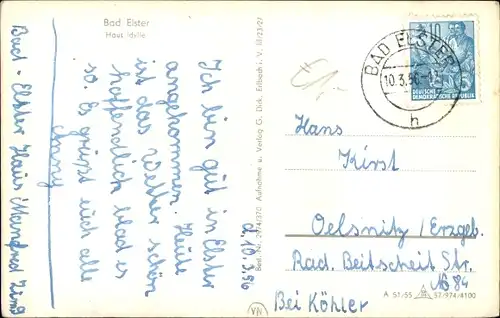 Bad Elster
Haus Idylle
d. 10.3.56
Ich bin gut in Elster
angekommen. Heute
ist das Wetter schön
hoffentlich blad es
so. Es grüßt euch alle
Anny
Bad-Elster Haus Manfred
Best.-Nr. 374/370 Aufnahme u. Verlag G. Dick, Erlbach i. V. III/23/27
10
DEUTSCHE
DEMOKRATISCHE REPUBLIK
BAD ELSTER
10.3.56
h
Hans
Kirst
Oelsnitz/Erzgeb.
Rad. Beitscheit Str.
No 84
Bei Köhler
A 51/55 S2/974/4100
VN